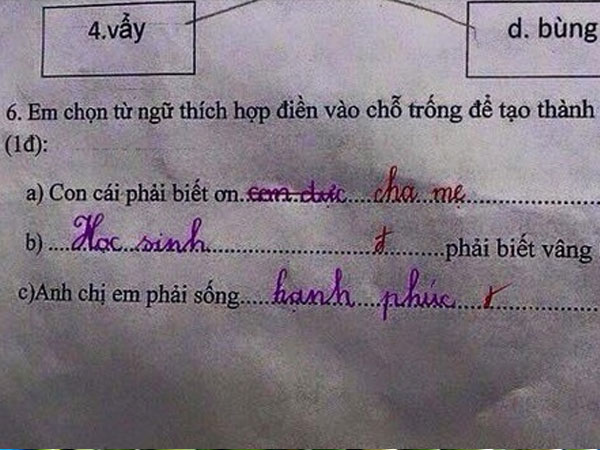 4.vẩy d. bùng
6. Em chọn từ ngữ thích hợp điền vào chỗ trống để tạo thành
(1đ):
a) Con cái phải biết ơn..............cha...mẹ......................
b) ....Học..sinh.................................đ..........phải biết vâng
c)Anh chị em phải sống.....hạnh....phúc....đ...............